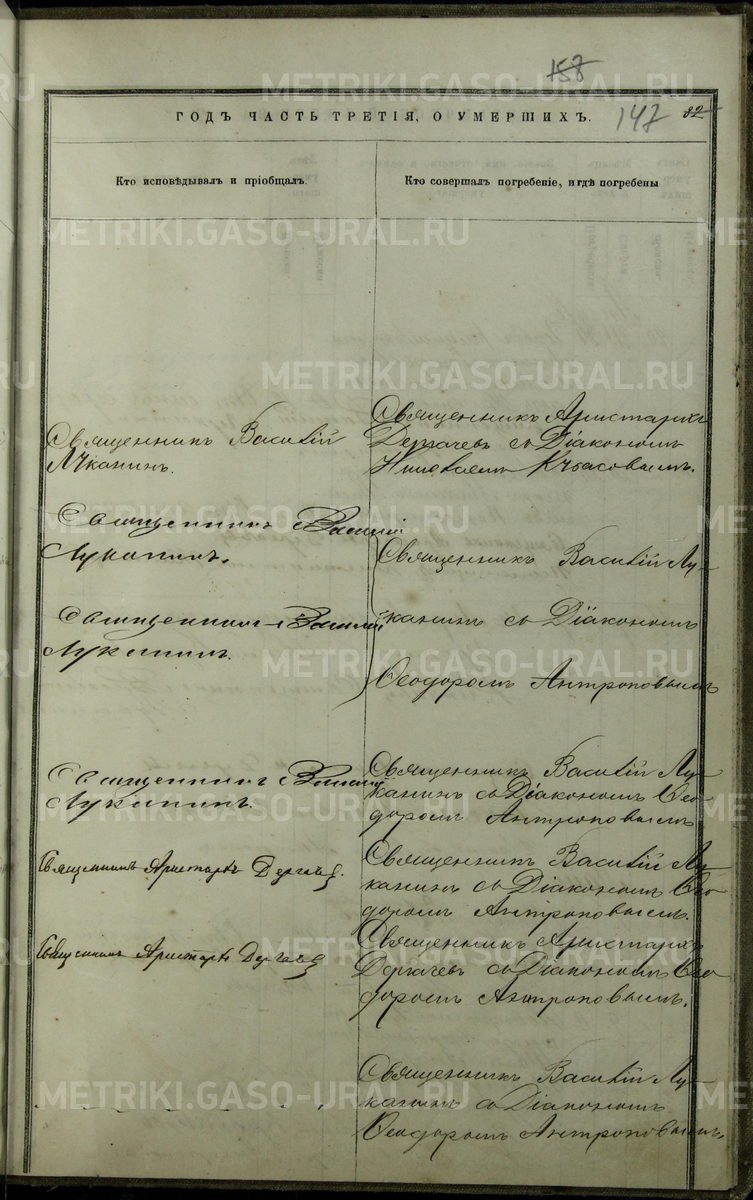 158
147 82
ГОДЪ ЧАСТЬ ТРЕТІЯ, О УМЕРШИХЪ.
Кто исповѣдывалъ и пріобщалъ.
Кто совершалъ погребеніе, и гдѣ погребены
Священникъ Василій
Луканинъ.
Священникъ Аристархъ
Дергачевъ съ Діакономъ
Священникъ Василій
Луканинъ.
Священникъ Василій
Луканинъ.
Священникъ Василій Лу-
канинъ съ Діакономъ
Ѳеодоромъ Антроповымъ
Священникъ Василій
Луканинъ.
Священникъ Василій Лу-
канинъ съ Діакономъ Ѳео-
доромъ Антроповымъ
Священникъ Аристархъ Дергачев.
Священникъ Василій Лу-
канинъ съ Діакономъ Ѳео-
доромъ Антроповымъ.
Священникъ Аристархъ Дергачев
Священникъ Аристархъ
Дергачевъ съ Діакономъ Ѳео-
доромъ Антроповымъ.
Священникъ Василій Лу-
канинъ съ Діакономъ
Ѳеодоромъ Антроповымъ.
METRIKI.GASO-URAL.RU